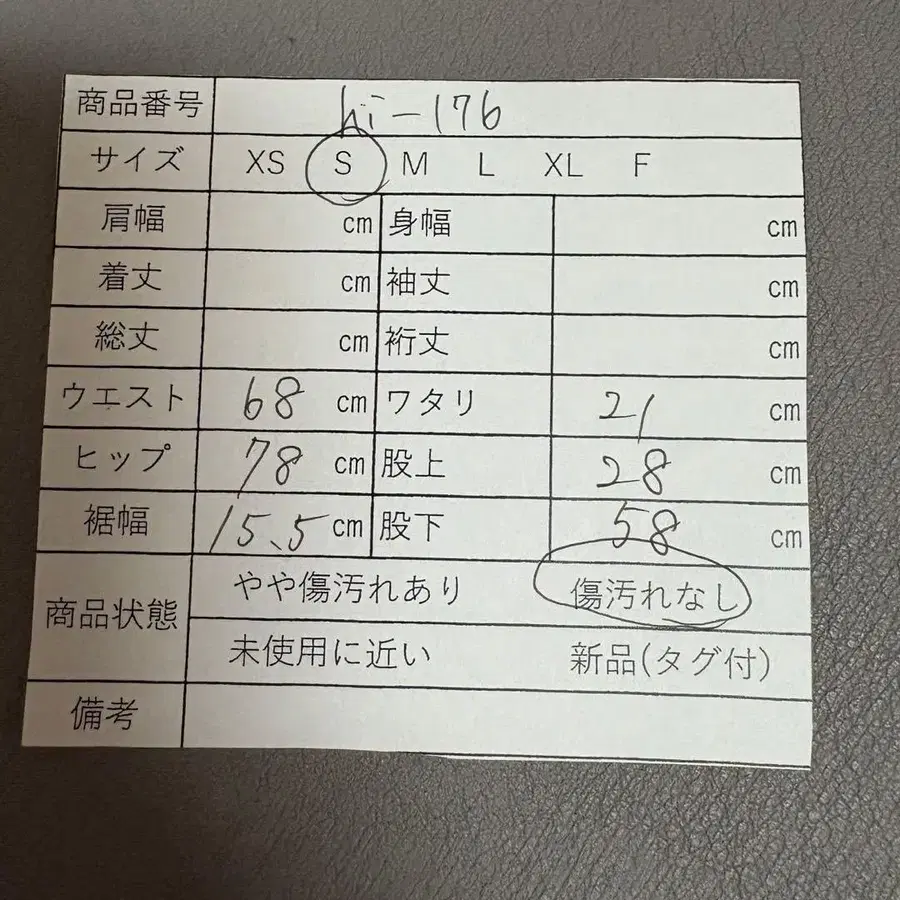 商品番号 hi-176
サイズ XS S M L XL F
肩幅 cm 身幅 cm
着丈 cm 袖丈 cm
総丈 cm 裄丈 cm
ウエスト 68 cm ワタリ 21 cm
ヒップ 78 cm 股上 28 cm
裾幅 15.5 cm 股下 58 cm
商品状態 やや傷汚れあり 傷汚れなし
未使用に近い 新品(タグ付)
備考